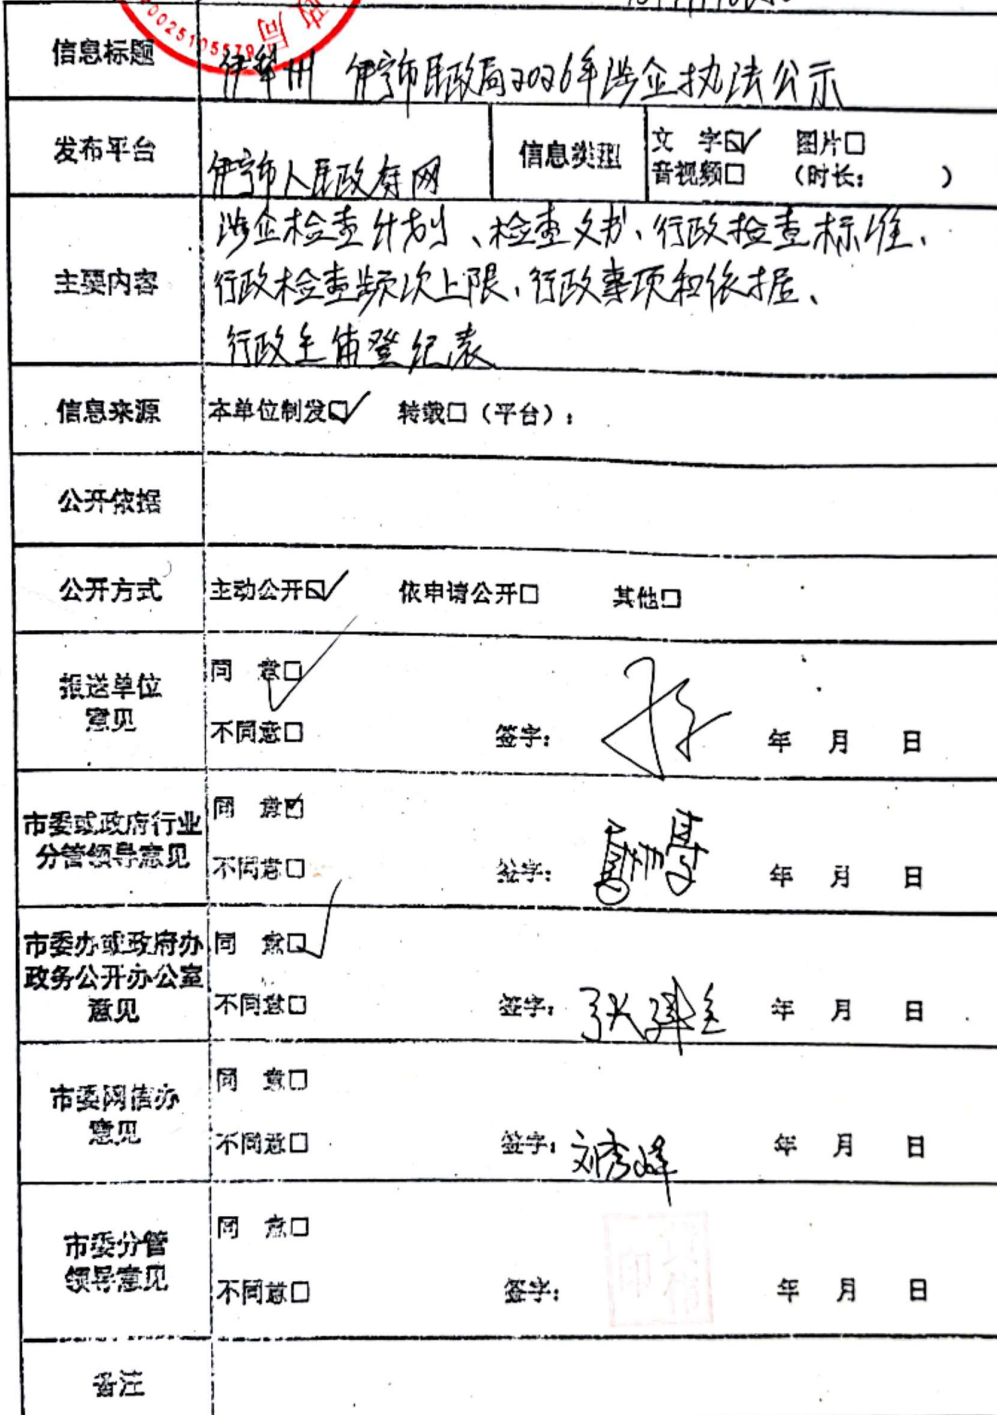 局
0025105579
信息标题
伊犁州 伊宁市民政局2026年涉企执法公示
发布平台
伊宁市人民政府网
信息类型
文 字☑ 图片□
音视频□ (时长: )
主要内容
涉企检查计划、检查文书、行政检查标准、
行政检查频次上限、行政事项和依据、
行政主体登记表
信息来源
本单位制发☑ 转载□(平台):
公开依据
公开方式
主动公开☑ 依申请公开□ 其他□
报送单位
意见
同 意☑
不同意□ 签字: 年 月 日
市委或政府行业
分管领导意见
同 意☑
不同意□ 签字: 年 月 日
市委办或政府办
政务公开办公室
意见
同 意☑
不同意□ 签字: 张 年 月 日
市委网信办
意见
同 意□
不同意□ 签字: 刘秀峰 年 月 日
市委分管
领导意见
同 意□
不同意□ 签字: 印 年 月 日
备注